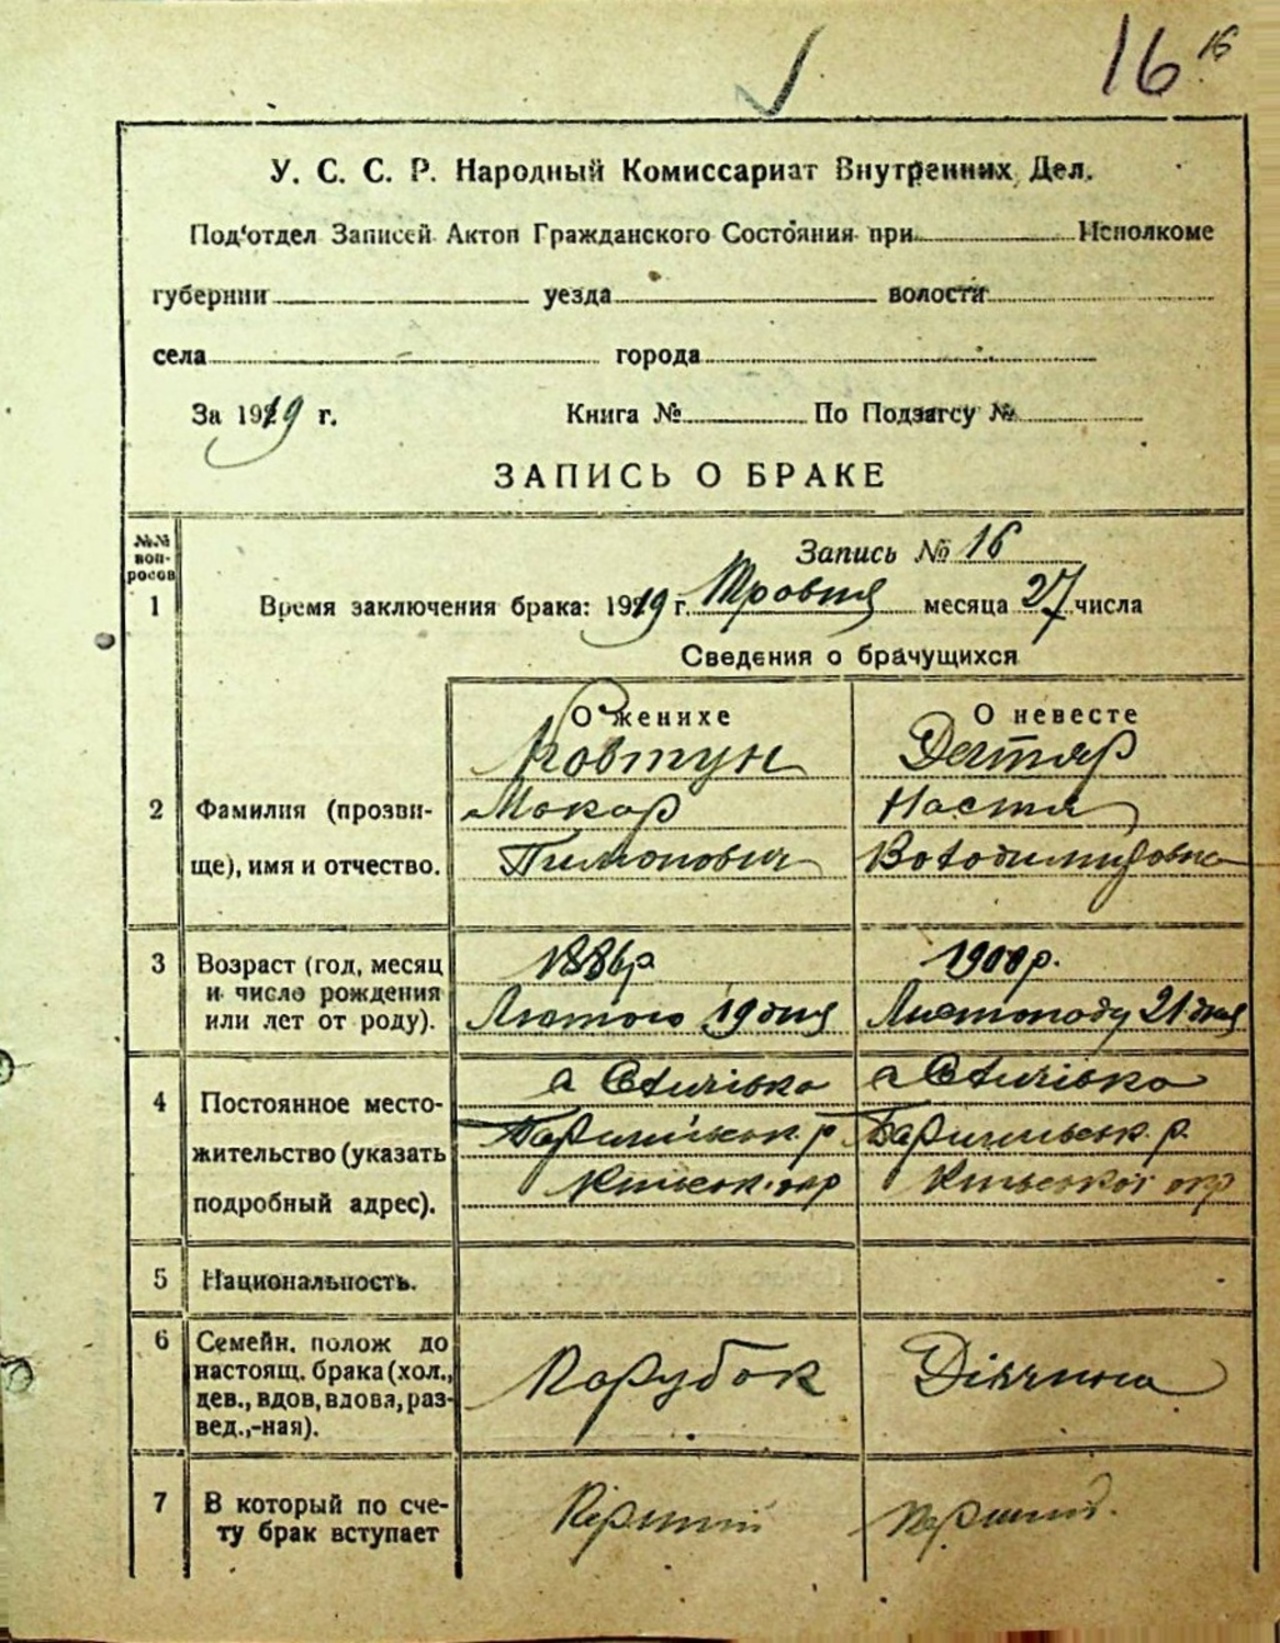 16 16
У. С. С. Р. Народный Комиссариат Внутренних Дел.
Под'отдел Записей Актов Гражданского Состояния при Исполкоме
губернии уезда волости
села города
За 1919 г. Книга № По Подзагсу №
ЗАПИСЬ О БРАКЕ
№№ вопросов
Запись № 16
1 Время заключения брака: 1919 г. Травня месяца 27 числа
Сведения о брачущихся
О женихе О невесте
Ковтун Дегтяр
2 Фамилия (прозви- Макар Настя
ще), имя и отчество. Пимонович Володимировна
3 Возраст (год, месяц 1886 р 1900 р.
и число рождения
или лет от роду). Лютого 19 дня Листопаду 21 дня
4 Постоянное место-
жительство (указать Баришівськ. р Баришівськ. р.
подробный адрес). Київськ. окр Київської окр
5 Национальность.
6 Семейн. полож до
настоящ. брака (хол., Парубок Дівчина
дев., вдов, вдова, раз-
вед.,-ная).
7 В который по сче- Перший Перший.
ту брак вступает